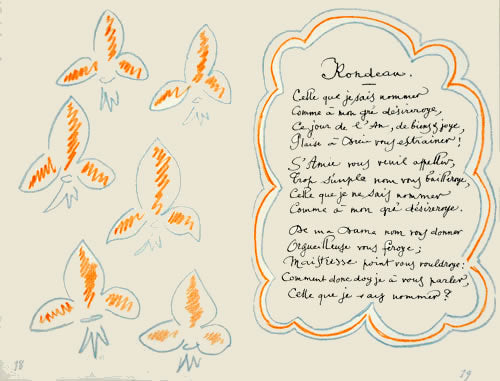 Rondeau.
Celle que je sais nommer
Comme à mon gré désireroye,
Ce jour de l'An, de biens & joye,
Plaise à Dieu vous estrainer!
S'Amie vous veuil appeller,
Trop simple nom vous bailleroye,
Celle que je ne sais nommer
Comme à mon gré désireroye.
De ma Dame nom vous donner
Orgueilleuse vous feroye;
Maistresse point vous vouldroye:
Comment donc doy je à vous parler,
Celle que je sais nommer?